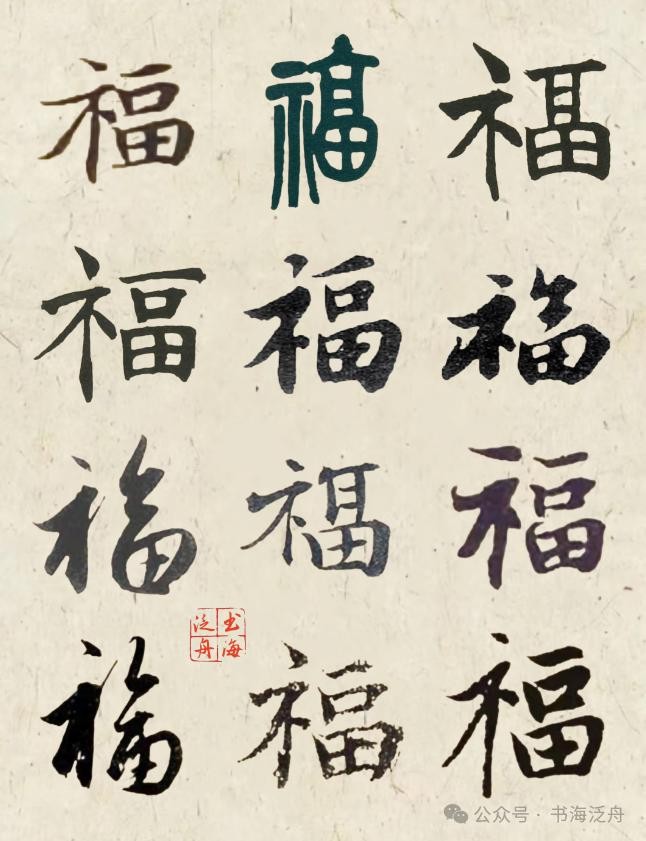 福 福 福
福 福 福
福 福 福
书海泛舟
福 福 福
公众号·书海泛舟